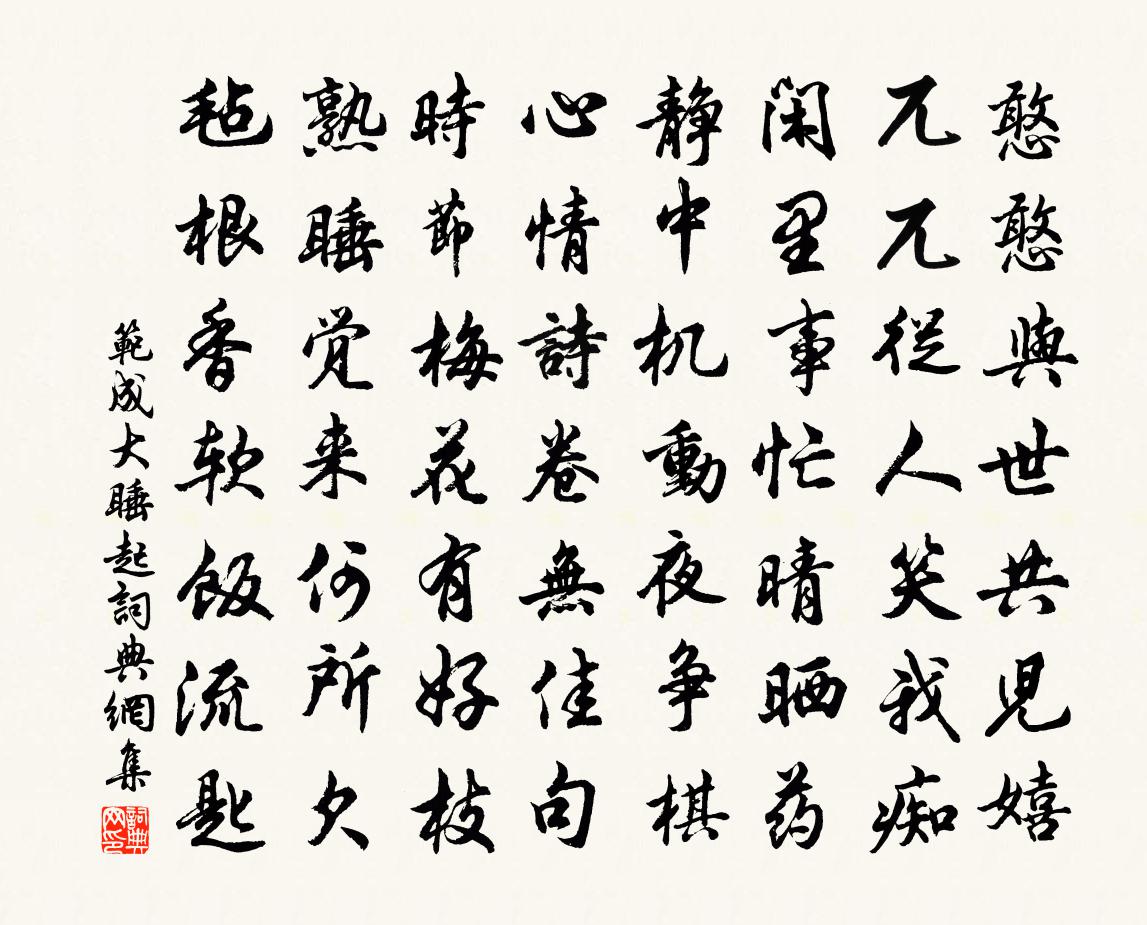 憨憨與世共児嬉
兀兀從人笑我痴
閑里事忙晴晒药
静中机動夜争棋
心情詩卷無佳句
時節梅花有好枝
熟睡覚来何所欠
毡根香软飯流匙
範成大睡起詞典網集
詞典网印